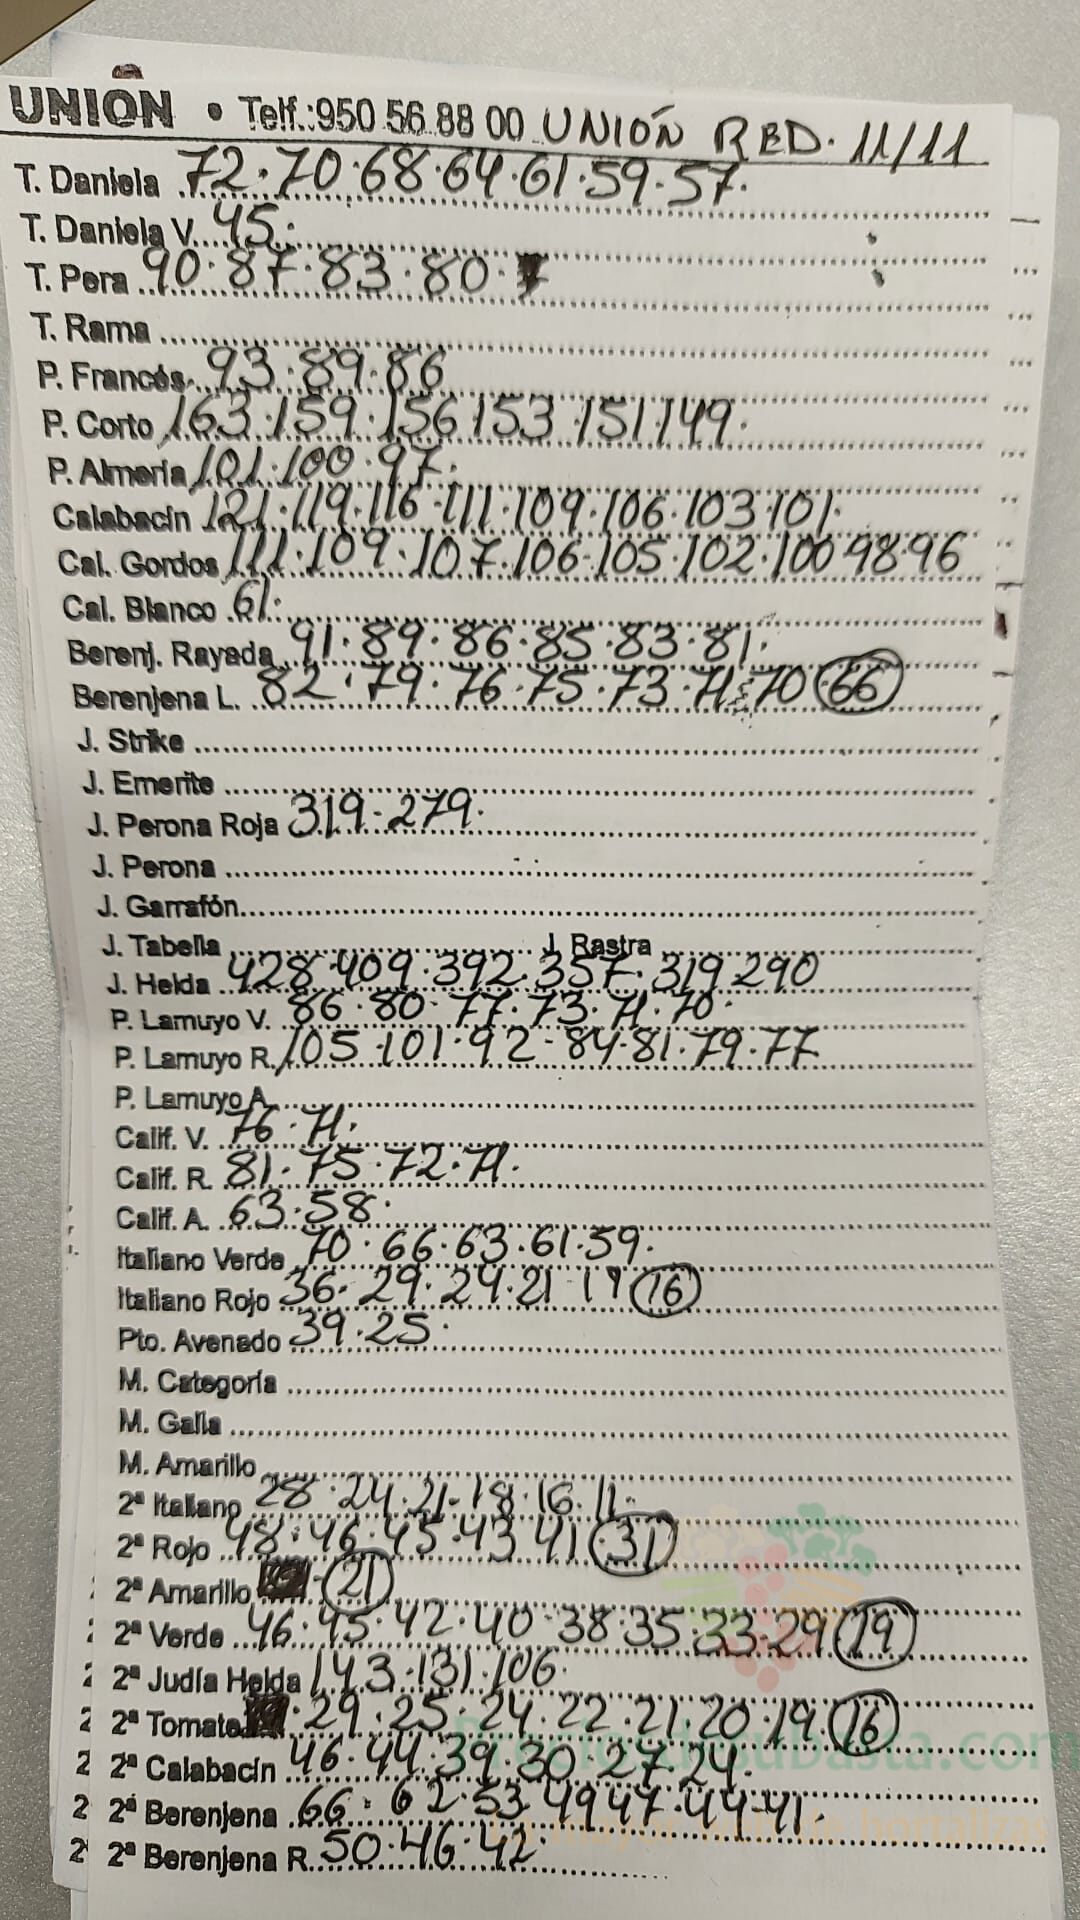 UNION • Telf.:950 56 88 00 UNIÓN RED. 11/11
T. Daniela 72·70·68·64·61·59·57·
T. Daniela V. 45·
T. Pera 90·87·83·80·
T. Rama
P. Francés 93·89·86
P. Corto 163·159·156 153·151·149·
P. Almería 101·100·97·
Calabacín 121·119·116·111·109·106·103·101·
Cal. Gordos 111·109·107·106·105·102·100·98·96
Cal. Blanco 61·
Berenj. Rayada 91·89·86·85·83·81·
Berenjena L. 82·79·76·75·73·71·70 66
J. Strike
J. Emerite
J. Perona Roja 319·279·
J. Perona
J. Garrafón
J. Tabella J. Rastra
J. Helda 428·409·392·357·319·290
P. Lamuyo V. 86·80·77·73·71·70·
P. Lamuyo R. 105·101·92·84·81·79·77
P. Lamuyo A.
Calif. V. 76·71·
Calif. R. 81·75·72·71·
Calif. A. 63·58·
Italiano Verde 70·66·63·61·59·
Italiano Rojo 36·29·24·21 16
Pto. Avenado 39·25·
M. Categoría
M. Galia
M. Amarillo
2ª Italiano 28·24·21·18·16·11·
2ª Rojo 48·46·45·43 41 31
2ª Amarillo 21
2ª Verde 46·45·42·40·38·35·33·29 19
2ª Judía Helda 143·131·106·
2ª Tomate ·29·25·24·22·21·20·19· 16
2ª Calabacín 46·44·39·30·27·24·
2ª Berenjena 66·62·53·49 47·44·41·
2ª Berenjena R. 50·46·42